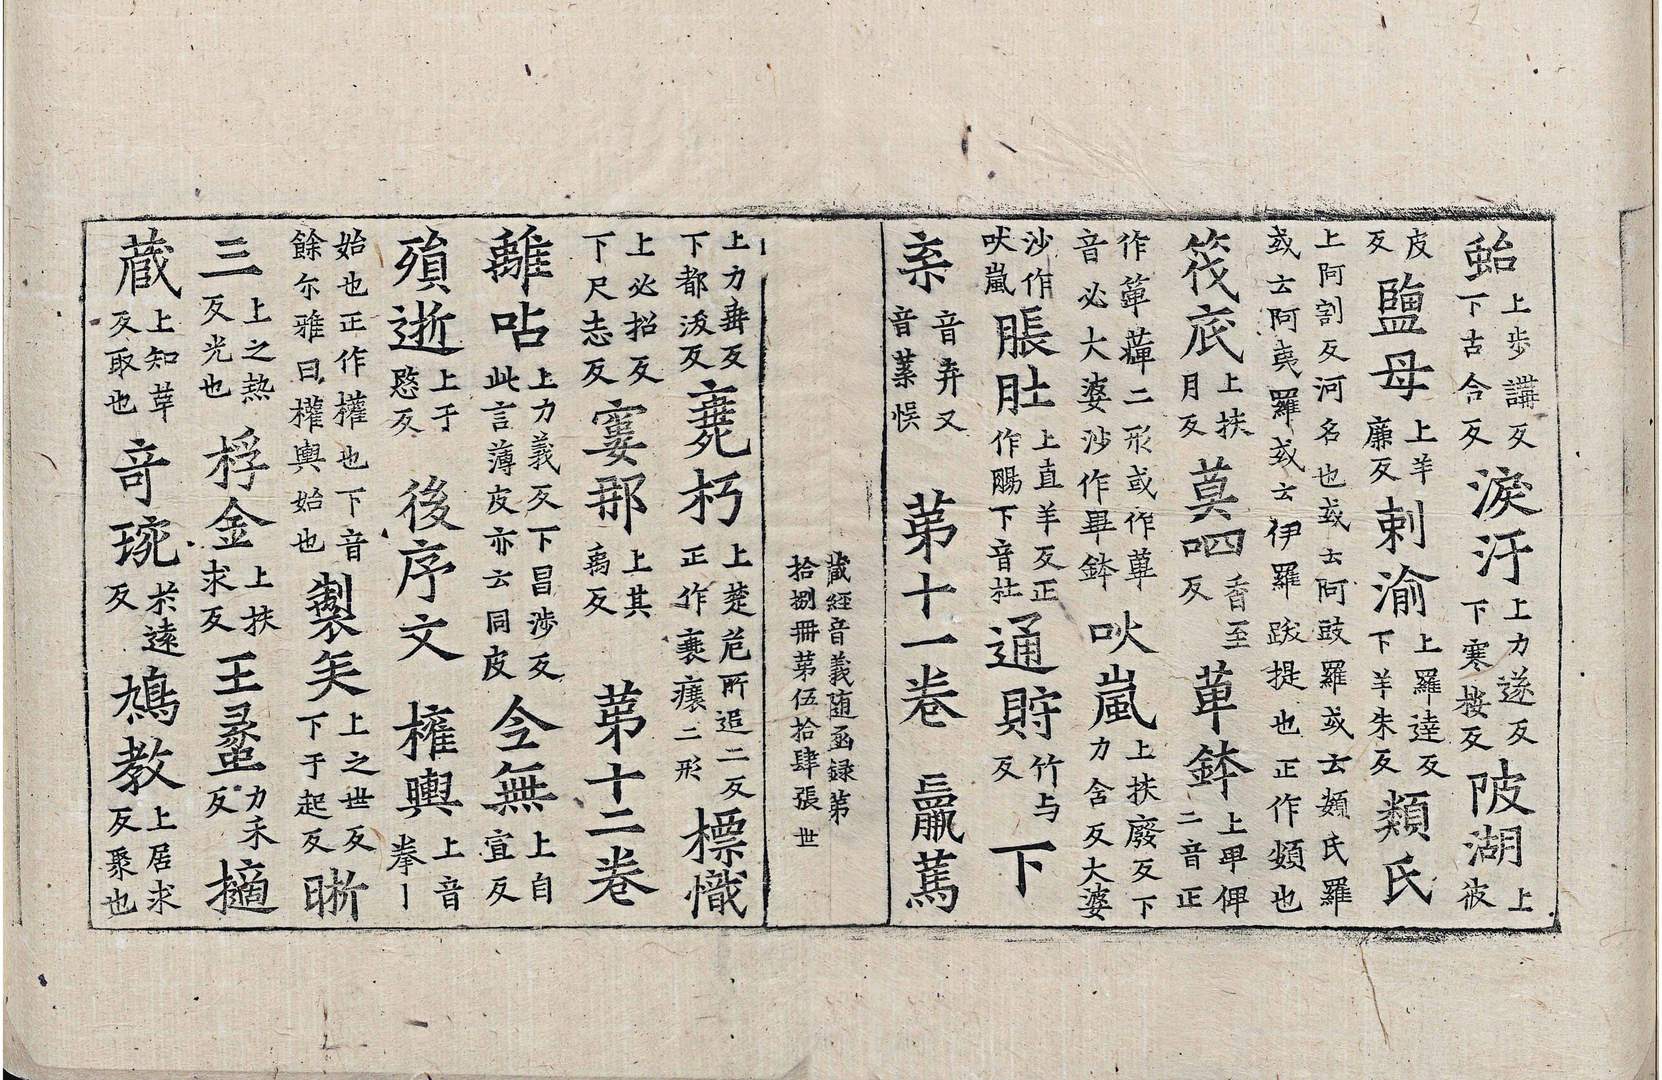 蛤上步講反下古合反淚汙上力遂反下寒桉反陂湖上彼
皮反鹽母上羊廉反剌渝上羅達反下羊朱反類氏
上阿割反河名也或云阿跂羅或云頞氏羅或云阿夷羅或云伊羅跋提也正作頞也
筏底上扶月反莫呬香至反萆鉢上卑俾二音正
作箄蓶二形或作萆音必大婆沙作畢鉢吠嵐上扶廢反下力含反大婆
沙作吠嵐脹肚上直羊反正作腸下音杜通貯竹与反下
亲音弃又音業悞 第十一卷 羸蔿
藏經音義随函録第拾捌冊第伍拾肆張 世
上力垂反下都汲反蕘朽上楚危所追二反正作衰㾽二形標幟
上必招反下尺志反寠那上其禹反 第十二卷
離呫上力義反下昌涉反此言薄皮亦云同皮今無上自宣反
殞逝上于愍反 後序文 權輿上音拳丨
始也正作權也下音餘尓雅曰權輿始也製矣上之世反下于起反晣
三上之熱反光也桴金上扶求反王蠡力禾反擿
蕆上知葦反取也奇琬於遠反鳩教上居求反聚也